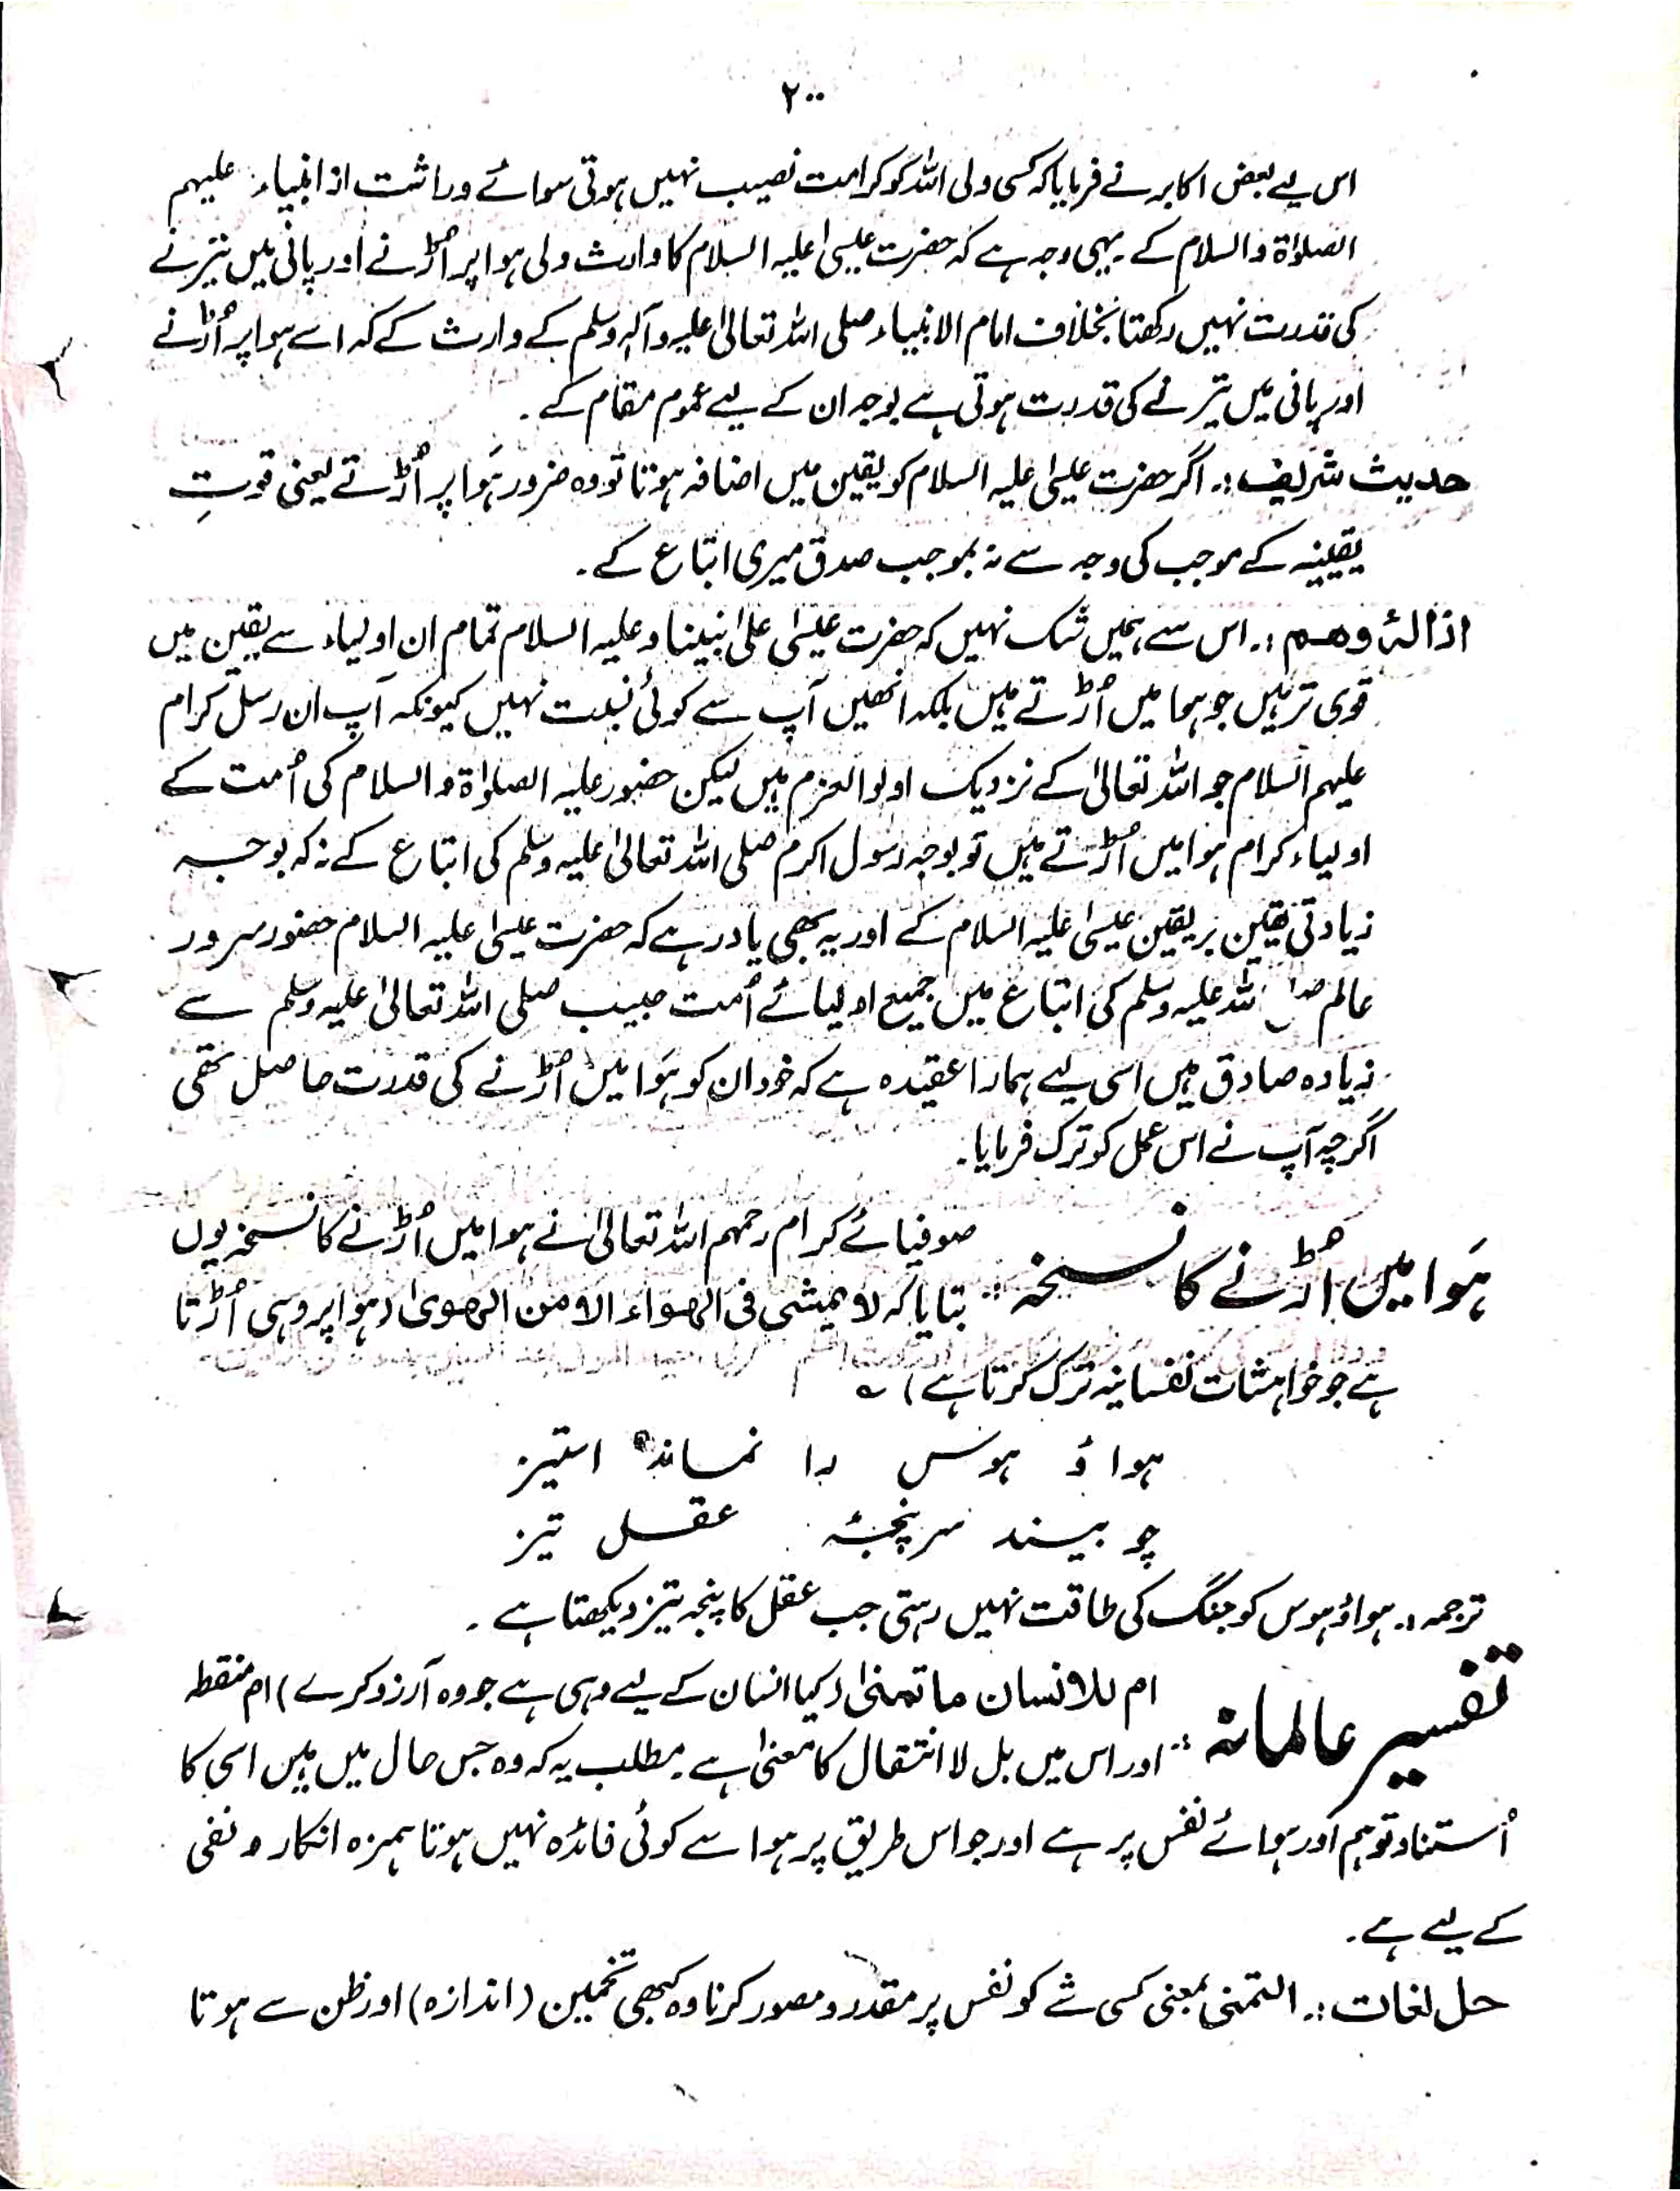 ۲۰۰
اس لیے بعض اکابر نے فرمایا کہ کسی ولی اللہ کو کرامت نصیب نہیں ہوتی سوائے وراثت از انبیاء علیہم
الصلوٰۃ والسلام کے یہی وجہ ہے کہ حضرت عیسیٰ علیہ السلام کا وارث ولی ہوا پر اُڑنے اور پانی میں تیرنے
کی قدرت نہیں رکھتا بخلاف امام الانبیاء صلی اللہ تعالیٰ علیہ وآلہ وسلم کے وارث کے کہ اسے ہوا پر اُڑنے
اور پانی میں تیرنے کی قدرت ہوتی ہے بوجہ ان کے لیے عموم مقام کے ۔
حدیث شریف :۔ اگر حضرت عیسیٰ علیہ السلام کو یقین میں اضافہ ہوتا تو وہ ضرور ہَوا پر اُڑتے یعنی قوتِ
یقینیہ کے موجب کی وجہ سے نہ بموجب صدق میری اتباع کے ۔
ازالۂ وھم :۔ اس سے ہمیں شک نہیں کہ حضرت عیسیٰ علیٰ نبینا و علیہ السلام تمام ان اولیاء سے یقین میں
قوی تر ہیں جو ہوا میں اُڑتے ہیں بلکہ انھیں آپ سے کوئی نسبت نہیں کیونکہ آپ ان رسل کرام
علیہم السلام جو اللہ تعالیٰ کے نزدیک اولوالعزم ہیں لیکن حضور علیہ الصلوٰۃ والسلام کی اُمت کے
اولیاء کرام ہوا میں اُڑتے ہیں تو بوجہ رسول اکرم صلی اللہ تعالیٰ علیہ وسلم کی اتباع کے نہ کہ بوجہ
زیادتی یقین بر یقین عیسیٰ علیہ السلام کے اور یہ بھی یاد رہے کہ حضرت عیسیٰ علیہ السلام حضور سرور
عالم صلی اللہ علیہ وسلم کی اتباع میں جمیع اولیائے اُمت حبیب صلی اللہ تعالیٰ علیہ وسلم سے
زیادہ صادق ہیں اسی لیے ہمارا عقیدہ ہے کہ خود ان کو ہَوا میں اُڑنے کی قدرت حاصل تھی
اگرچہ آپ نے اس عمل کو ترک فرمایا ۔
ہَوا میں اُڑنے کا نسخہ :: صوفیائے کرام رحمہم اللہ تعالیٰ نے ہوا میں اُڑنے کا نسخہ یوں
بتایا کہ لا یمشی فی الھواء الا من الھویٰ (ہوا پر وہی اُڑتا
ہے جو خواہشات نفسانیہ ترک کرتا ہے) ؎
ہوا ؤ ہوس را نماند استیز
چو بیند سر پنجۂ عقل تیز
ترجمہ :۔ ہوا ؤ ہوس کو جنگ کی طاقت نہیں رہتی جب عقل کا پنجہ تیز دیکھتا ہے ۔
تفسیر عالمانہ :: ام للانسان ما تمنیٰ (کیا انسان کے لیے وہی ہے جو وہ آرزو کرے) ام منقطہ
اور اس میں بل لا انتقال کا معنیٰ ہے ۔ مطلب یہ کہ وہ جس حال میں ہیں اسی کا
اُستناد توہم اور ہوائے نفس پر ہے اور جو اس طریق پر ہو اسے کوئی فائدہ نہیں ہوتا ہمزہ انکار و نفی
کے لیے ہے ۔
حل لغات :۔ التمنی بمعنی کسی شے کو نفس پر مقدر و مصور کرنا وہ کبھی تخمین (اندازہ) اور ظن سے ہوتا